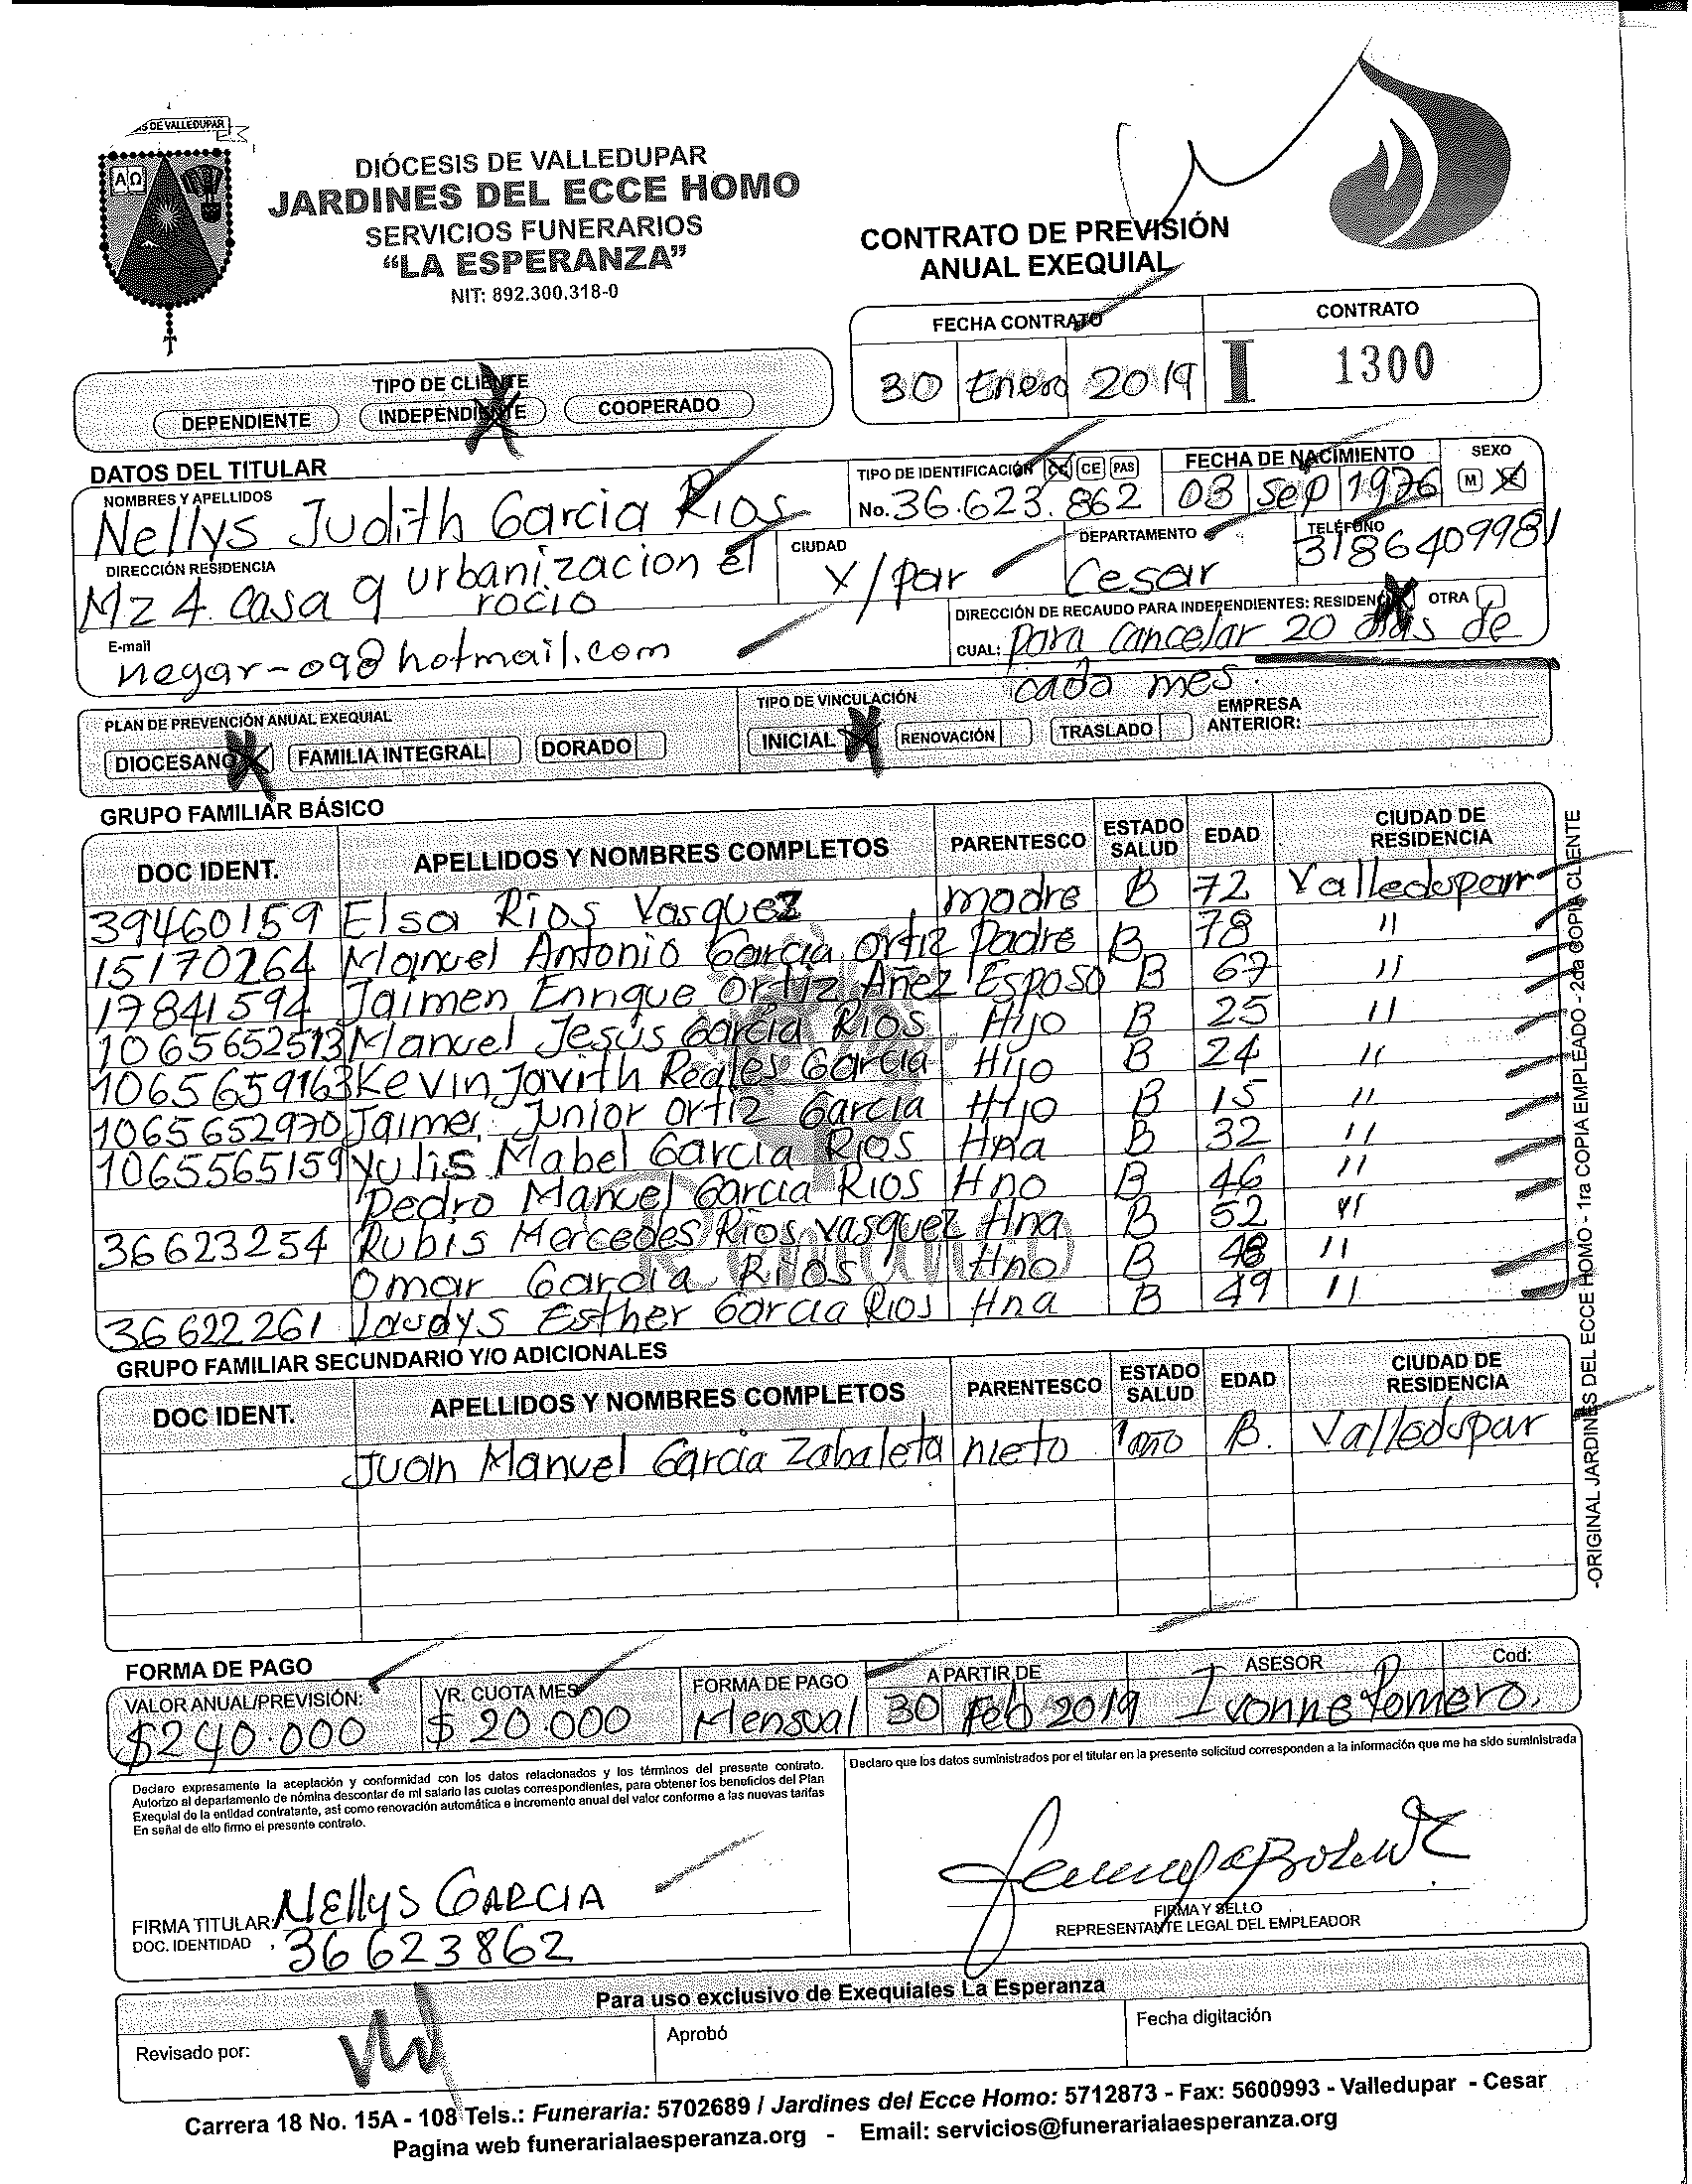 S DE VALLEDUPAR
ΑΩ
DIÓCESIS DE VALLEDUPAR
JARDINES DEL ECCE HOMO
SERVICIOS FUNERARIOS
“LA ESPERANZA”
NIT: 892.300.318-0
CONTRATO DE PREVISIÓN
ANUAL EXEQUIAL
FECHA CONTRATO CONTRATO
30 Enero 2019 I 1300
TIPO DE CLIENTE
DEPENDIENTE INDEPENDIENTE COOPERADO
DATOS DEL TITULAR
NOMBRES Y APELLIDOS
Nellys Judith Garcia Rios
TIPO DE IDENTIFICACIÓN CC CE PAS
No. 36.623.862
FECHA DE NACIMIENTO
03 Sep 1976
SEXO
M
DIRECCIÓN RESIDENCIA
Mz 4 casa 9 urbanizacion el
rocio
CIUDAD
V/par
DEPARTAMENTO
Cesar
TELÉFONO
3186409981
E-mail
negar-09@hotmail.com
DIRECCIÓN DE RECAUDO PARA INDEPENDIENTES: RESIDENCIA OTRA
CUAL: para cancelar 20 dias de
cada mes.
PLAN DE PREVENCIÓN ANUAL EXEQUIAL
DIOCESANO FAMILIA INTEGRAL DORADO
TIPO DE VINCULACIÓN
INICIAL RENOVACIÓN TRASLADO
EMPRESA
ANTERIOR:
GRUPO FAMILIAR BÁSICO
DOC IDENT. APELLIDOS Y NOMBRES COMPLETOS PARENTESCO ESTADO SALUD EDAD CIUDAD DE RESIDENCIA
39460159 Elsa Rios Vasquez madre B 72 Valledupar
15170264 Manuel Antonio Garcia Ortiz Padre B 78 "
17841594 Jaimen Enrique Ortiz Añez Esposo B 67 "
1065652513 Manuel Jesús Garcia Rios Hijo B 25 "
1065659163 Kevin Javith Reales Garcia Hijo B 24 "
1065652970 Jaimer Junior Ortiz Garcia Hijo B 15 "
1065565159 Yulis Mabel Garcia Rios Hna B 32 "
Pedro Manuel Garcia Rios Hno B 46 "
36623254 Rubis Mercedes Rios Vasquez Hna B 52 "
Omar Garcia Rios Hno B 48 "
36622261 Laudys Esther Garcia Rios Hna B 49 "
GRUPO FAMILIAR SECUNDARIO Y/O ADICIONALES
DOC IDENT. APELLIDOS Y NOMBRES COMPLETOS PARENTESCO ESTADO SALUD EDAD CIUDAD DE RESIDENCIA
Juan Manuel Garcia Zabaleta nieto 1año B. Valledupar
-ORIGINAL JARDINES DEL ECCE HOMO - 1ra COPIA EMPLEADO - 2da COPIA CLIENTE
FORMA DE PAGO
VALOR ANUAL/PREVISIÓN: VR. CUOTA MES FORMA DE PAGO A PARTIR DE ASESOR Cod:
$240.000 $20.000 Mensual 30 Feb 2019 Ivonne Romero.
Declaro expresamente la aceptación y conformidad con los datos relacionados y los términos del presente contrato.
Autorizo al departamento de nómina descontar de mi salario las cuotas correspondientes, para obtener los beneficios del Plan
Exequial de la entidad contratante, así como renovación automática e incremento anual del valor conforme a las nuevas tarifas
En señal de ello firmo el presente contrato.
Declaro que los datos suministrados por el titular en la presente solicitud corresponden a la información que me ha sido suministrada
FIRMA TITULAR: Nellys GARCIA
DOC. IDENTIDAD 36623862
FIRMA Y SELLO
REPRESENTANTE LEGAL DEL EMPLEADOR
Para uso exclusivo de Exequiales La Esperanza
Revisado por: Aprobó Fecha digitación
Carrera 18 No. 15A - 108 Tels.: Funeraria: 5702689 / Jardines del Ecce Homo: 5712873 - Fax: 5600993 - Valledupar - Cesar
Pagina web funerarialaesperanza.org - Email: servicios@funerarialaesperanza.org